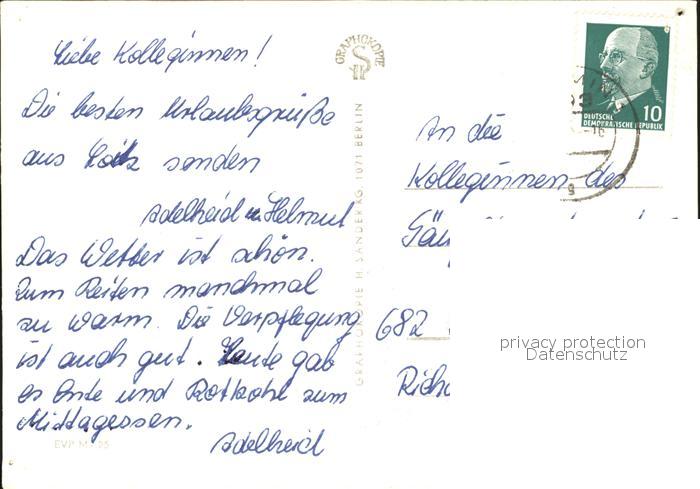 Liebe Kolleginnen!
Die besten Urlaubsgrüße
aus senden
Adelheid u. Helmut
Das Wetter ist schön.
Zum Reiten manchmal
zu warm. Die Verpflegung
ist auch gut. Heute gab
es Ente und Rotkohl zum
Mittagessen.
Adelheid
EVP M -,25
GRAPHOKOPIE
GRAPHOKOPIE H. SANDER KG, 1071 BERLIN
10
DEUTSCHE
DEMOKRATISCHE REPUBLIK
An die
Kolleginnen des
682
privacy protection
Datenschutz